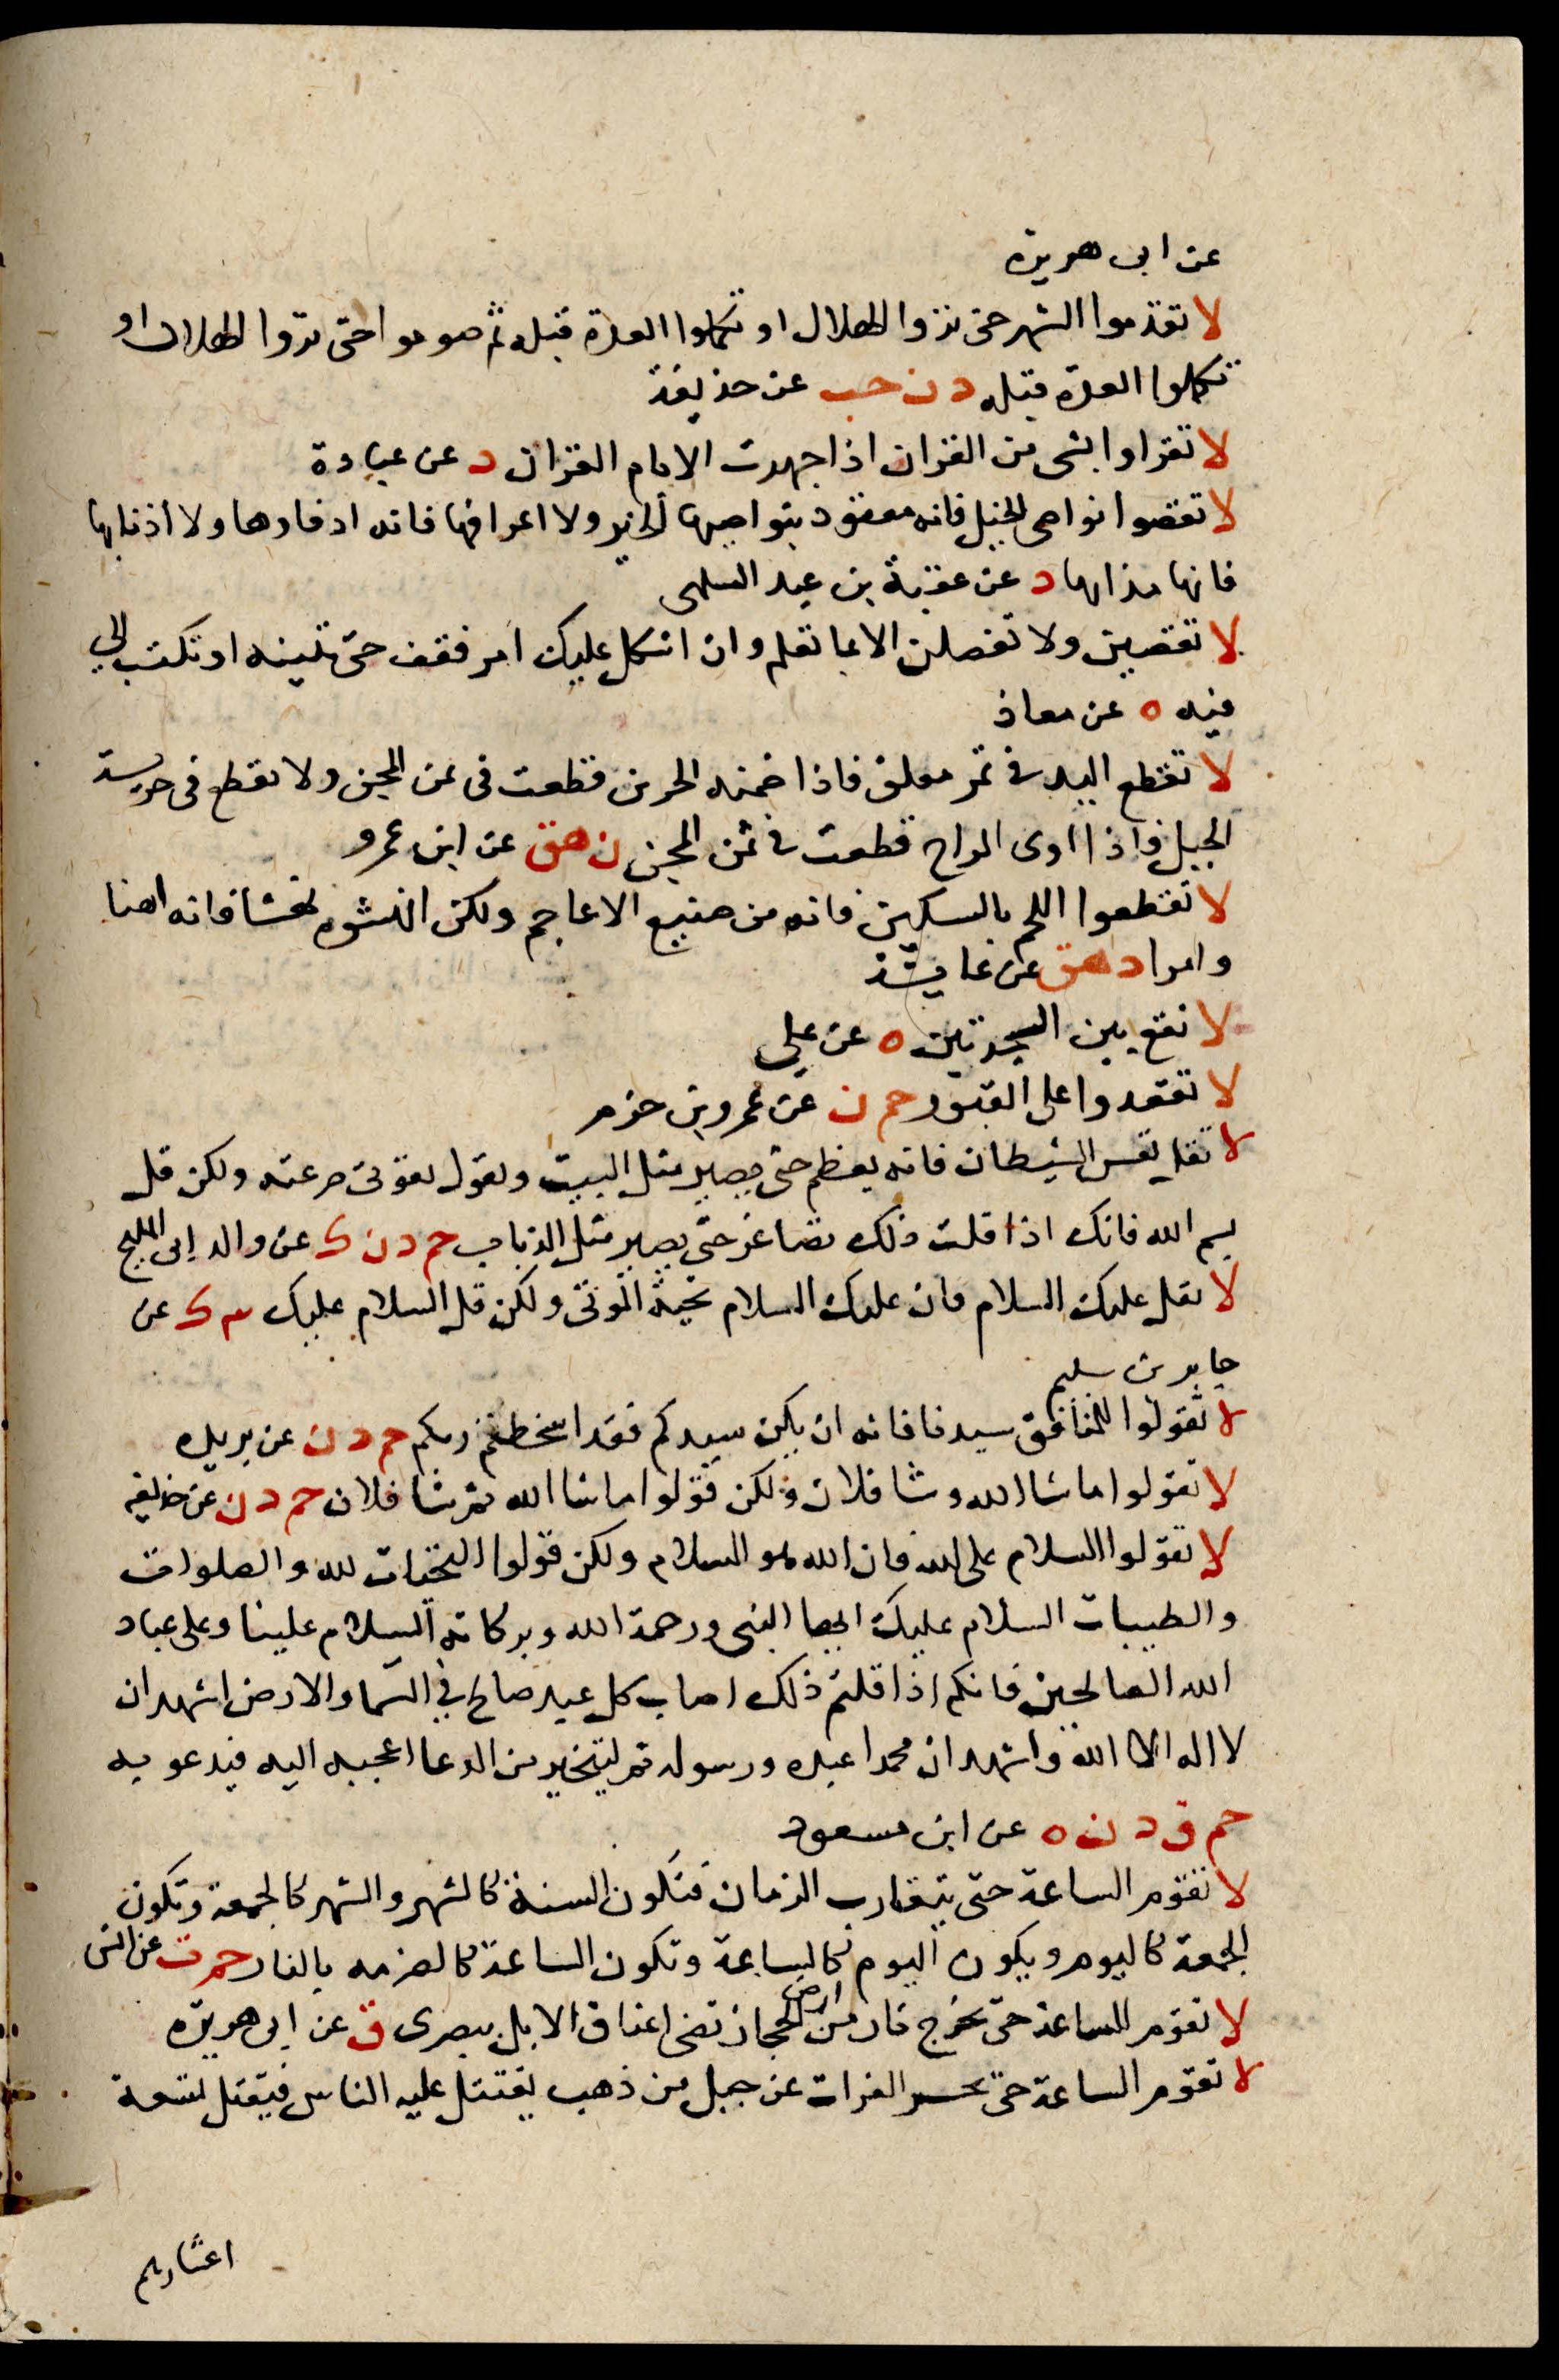 عن ابى هريرة
لا تقدموا الشهر حتى تروا الهلال او تكملوا العدة قبله ثم صوموا حتى تروا الهلال او
تكملوا العدة قبله د ن حب عن حذيفة
لا تقراوا بشى من القران اذا جهرت الا بام القران د عن عبادة
لا تقصوا نواصى الخيل فانه معقود بنواصيها الخير ولا اعرافها فانه ادفاوها ولا أذنابها
فانها مذابها د عن عقبة بن عبد السلمى
لا تقضين ولا تفصلن الا بما تعلم وان اشكل عليك امر فقف حتى تبينه او تكتب الي
فيه ه عن معاذ
لا تقطع اليد فى تمر معلق فاذا ضمنه الجرين قطعت فى ثمن المجن ولا تقطع فى حريسة
الجبل فاذا اوى المراح قطعت فى ثمن المجن ن هق عن ابن عمرو
لا تقطعوا اللحم بالسكين فانه من صنيع الاعاجم ولكن انهشوه نهشا فانه اهنا
وامرا د هق عن عايشة
لا تقع بين السجدتين ه عن علي
لا تقعدوا على القبور حم ن عن عمرو بن حزم
لا تقل تعس الشيطان فانه يعظم حتى يصير مثل البيت ويقول بقوتى صرعته ولكن قل
بسم الله فانك اذا قلت ذلك تصاغر حتى يصير مثل الذباب حم د ن ك عن والد ابى المليح
لا تقل عليك السلام فان عليك السلام تحية الموتى ولكن قل السلام عليك ك عن
جابر بن سليم
لا تقولوا للمنافق سيدنا فانه ان يكن سيدكم فقد اسخطتم ربكم حم د ن عن بريده
لا تقولوا ما شا الله وشا فلان ولكن قولوا ما شا الله ثم شا فلان حم د ن عن حذيفه
لا تقولوا السلام على الله فان الله هو السلام ولكن قولوا التحيات لله والصلوات
والطيبات السلام عليك ايها النبى ورحمة الله وبركاته السلام علينا وعلى عباد
الله الصالحين فانكم اذا قلتم ذلك اصاب كل عبد صالح في السما والارض اشهد ان
لا اله الا الله واشهد ان محمدا عبده ورسوله ثم ليتخير من الدعا اعجبه اليه فيدعو به
حم ق د ن ه عن ابن مسعود
لا تقوم الساعة حتى يتقارب الزمان فتكون السنة كالشهر والشهر كالجمعة وتكون
الجمعة كاليوم ويكون اليوم كالساعة وتكون الساعة كالضرمه بالنار حم ت عن انس
لا تقوم الساعة حتى تخرج نار من ارض الحجاز تضى اعناق الابل ببصرى ق عن ابى هريرة
لا تقوم الساعة حتى يحسر الفرات عن جبل من ذهب يقتتل عليه الناس فيقتل تسعة
اعشارهم